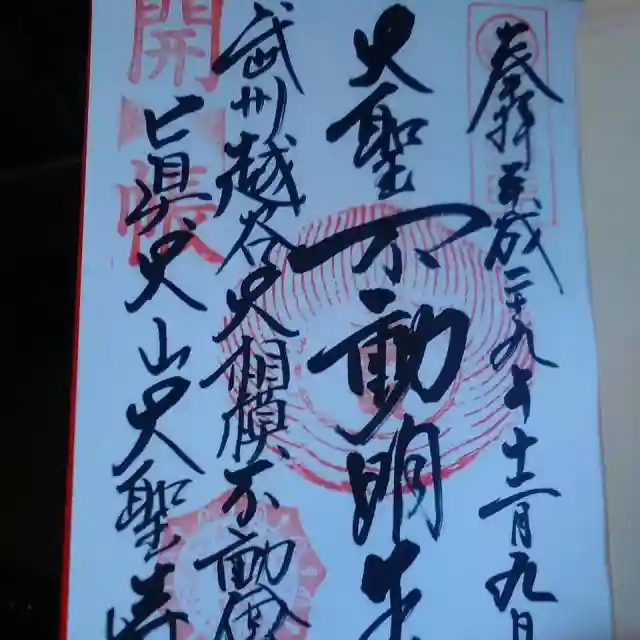 奉拝 平成二十九年十二月九日
大聖不動明王
武州越谷大相模不動尊
眞大山大聖寺
開帳